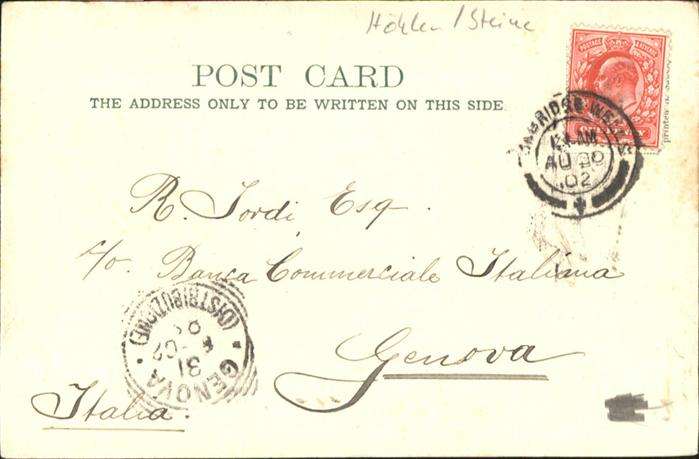 Höhlen / Steine
POST CARD
THE ADDRESS ONLY TO BE WRITTEN ON THIS SIDE
POSTAGE REVENUE
printed in
BRIDGE WELLS
AU 30
02
R. Tordi Esq.
c/o Banca Commerciale Italiana
Genova
Italia.
GENOVA
31
02
(DISTRIBUZIONE)